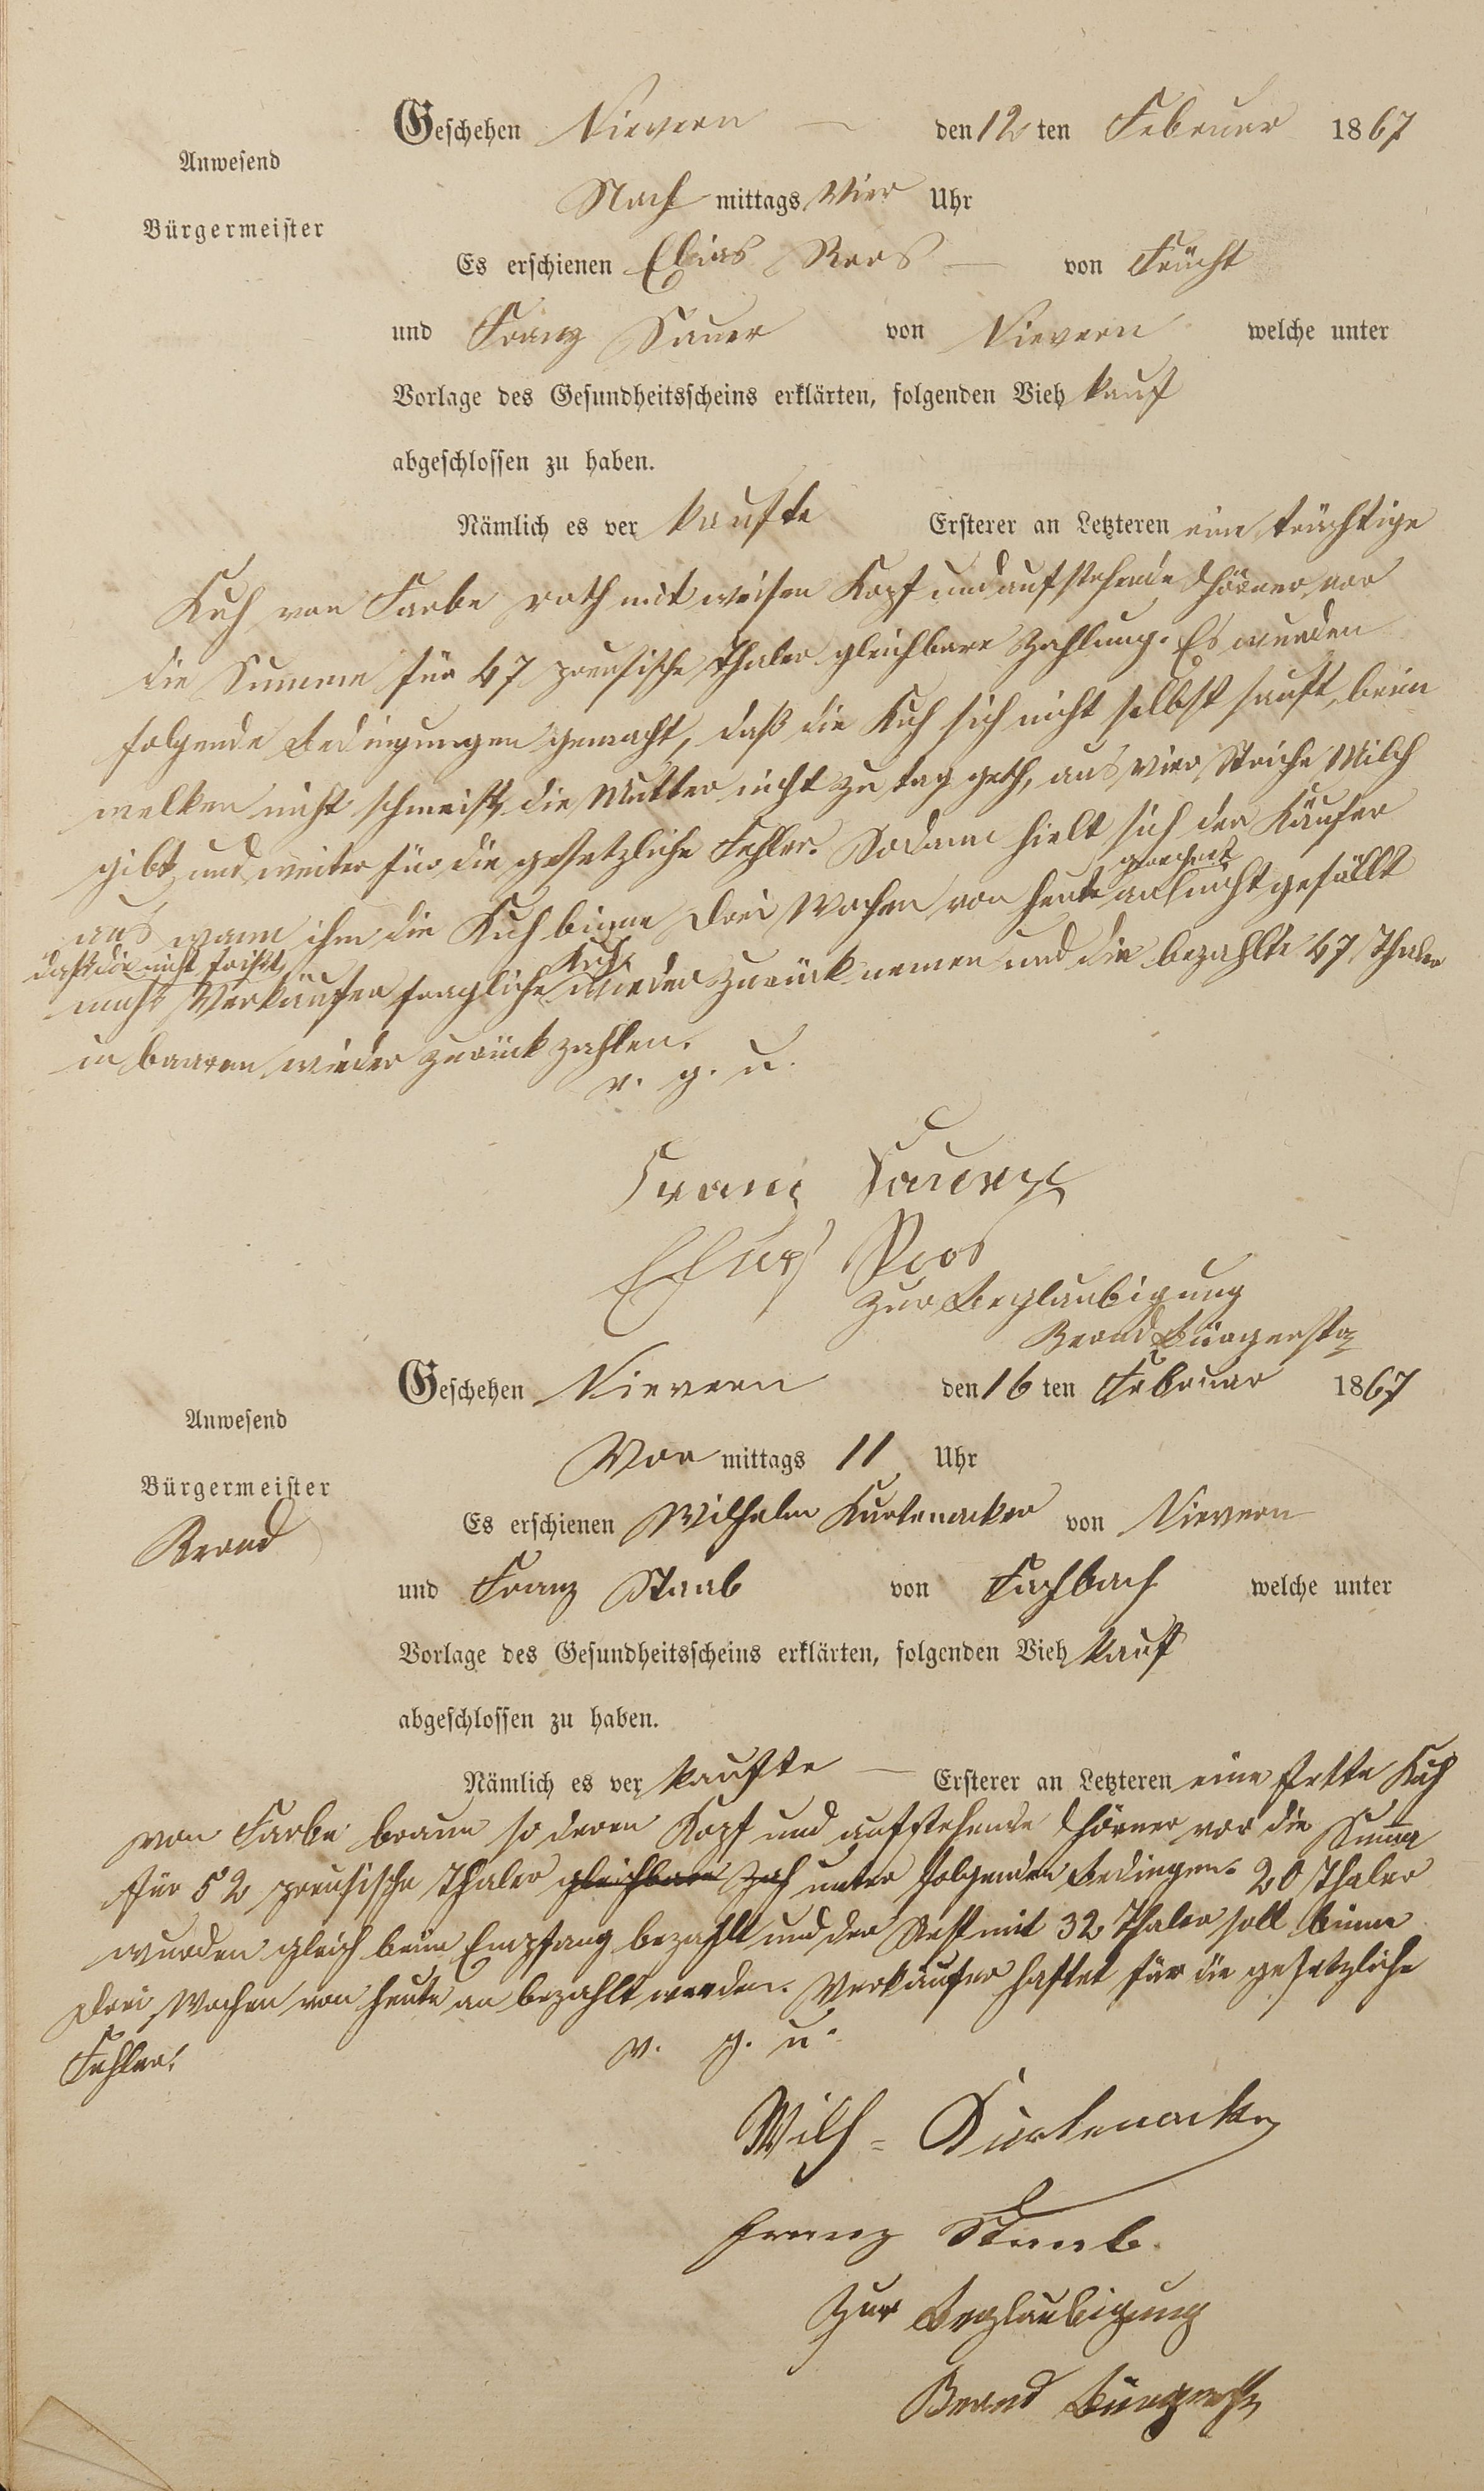 Geschehen Nievern — den 12 ten Februar 1867
Anwesend
Nach mittags Vier Uhr
Bürgermeister
Es erschienen Elias Roos — von Frücht
und Franz Sauer von Nievern welche unter
Vorlage des Gesundheitsscheins erklärten, folgenden Vieh kauf
abgeschlossen zu haben.
Nämlich es ver kaufte Ersterer an Letzteren eine trächtige
Kuh von Farbe roth mit weisen Kopf und aufstehende Hörner vor
die Summe für 47 preusische Thaler gleichbare Zahlung. Es wurden
folgende Bedingungen gemacht, daß die Kuh sich nicht selbst sauft, beim
melken nicht schmeist, die Mutter nicht zu tag geth, aus vier Striche Milch
gibt, und weiter für die gesetzliche Fehler. Sodann hielt sich der Käufer
gerechnet
aus wann ihm die Kuh binne drei Wochen von heute an nicht gefällt
daß die nicht frißt, Kuh
muß Verkäufer fragliche wieder zurück nemen und die bezahlte 47 Thaler
in baaren wieder zurück zahlen.
v. g. u.
Franz Sauer
Elias Roos
Zur Beglaubigung
Brand Bürgerstr
Geschehen Nievern den 16 ten Februar 1867
Anwesend
Vor mittags 11 Uhr
Bürgermeister
Es erschienen Wilhelm Kurtenacker von Nievern
Brand
und Franz Staab von Fachbach welche unter
Vorlage des Gesundheitsscheins erklärten, folgenden Vieh kauf
abgeschlossen zu haben.
Nämlich es ver kaufte — Ersterer an Letzteren eine fette Kuh
von Farbe braun so deren Kopf und aufstehende Hörner vor die Summa
für 52 preusische Thaler gleichbare Zah unter folgenden Bedingen. 20 Thaler
wurden gleich beim Empfang bezahlt und der Rest mit 32 Thaler soll binne
drei Wochen von heute an bezahlt werden. Verkäufer haftet für die gesetzliche
Fehler. v. g. u.
Wilh= Kurtenacker
Franz Staab.
Zur Beglaubigung
Brand Bürgerstr